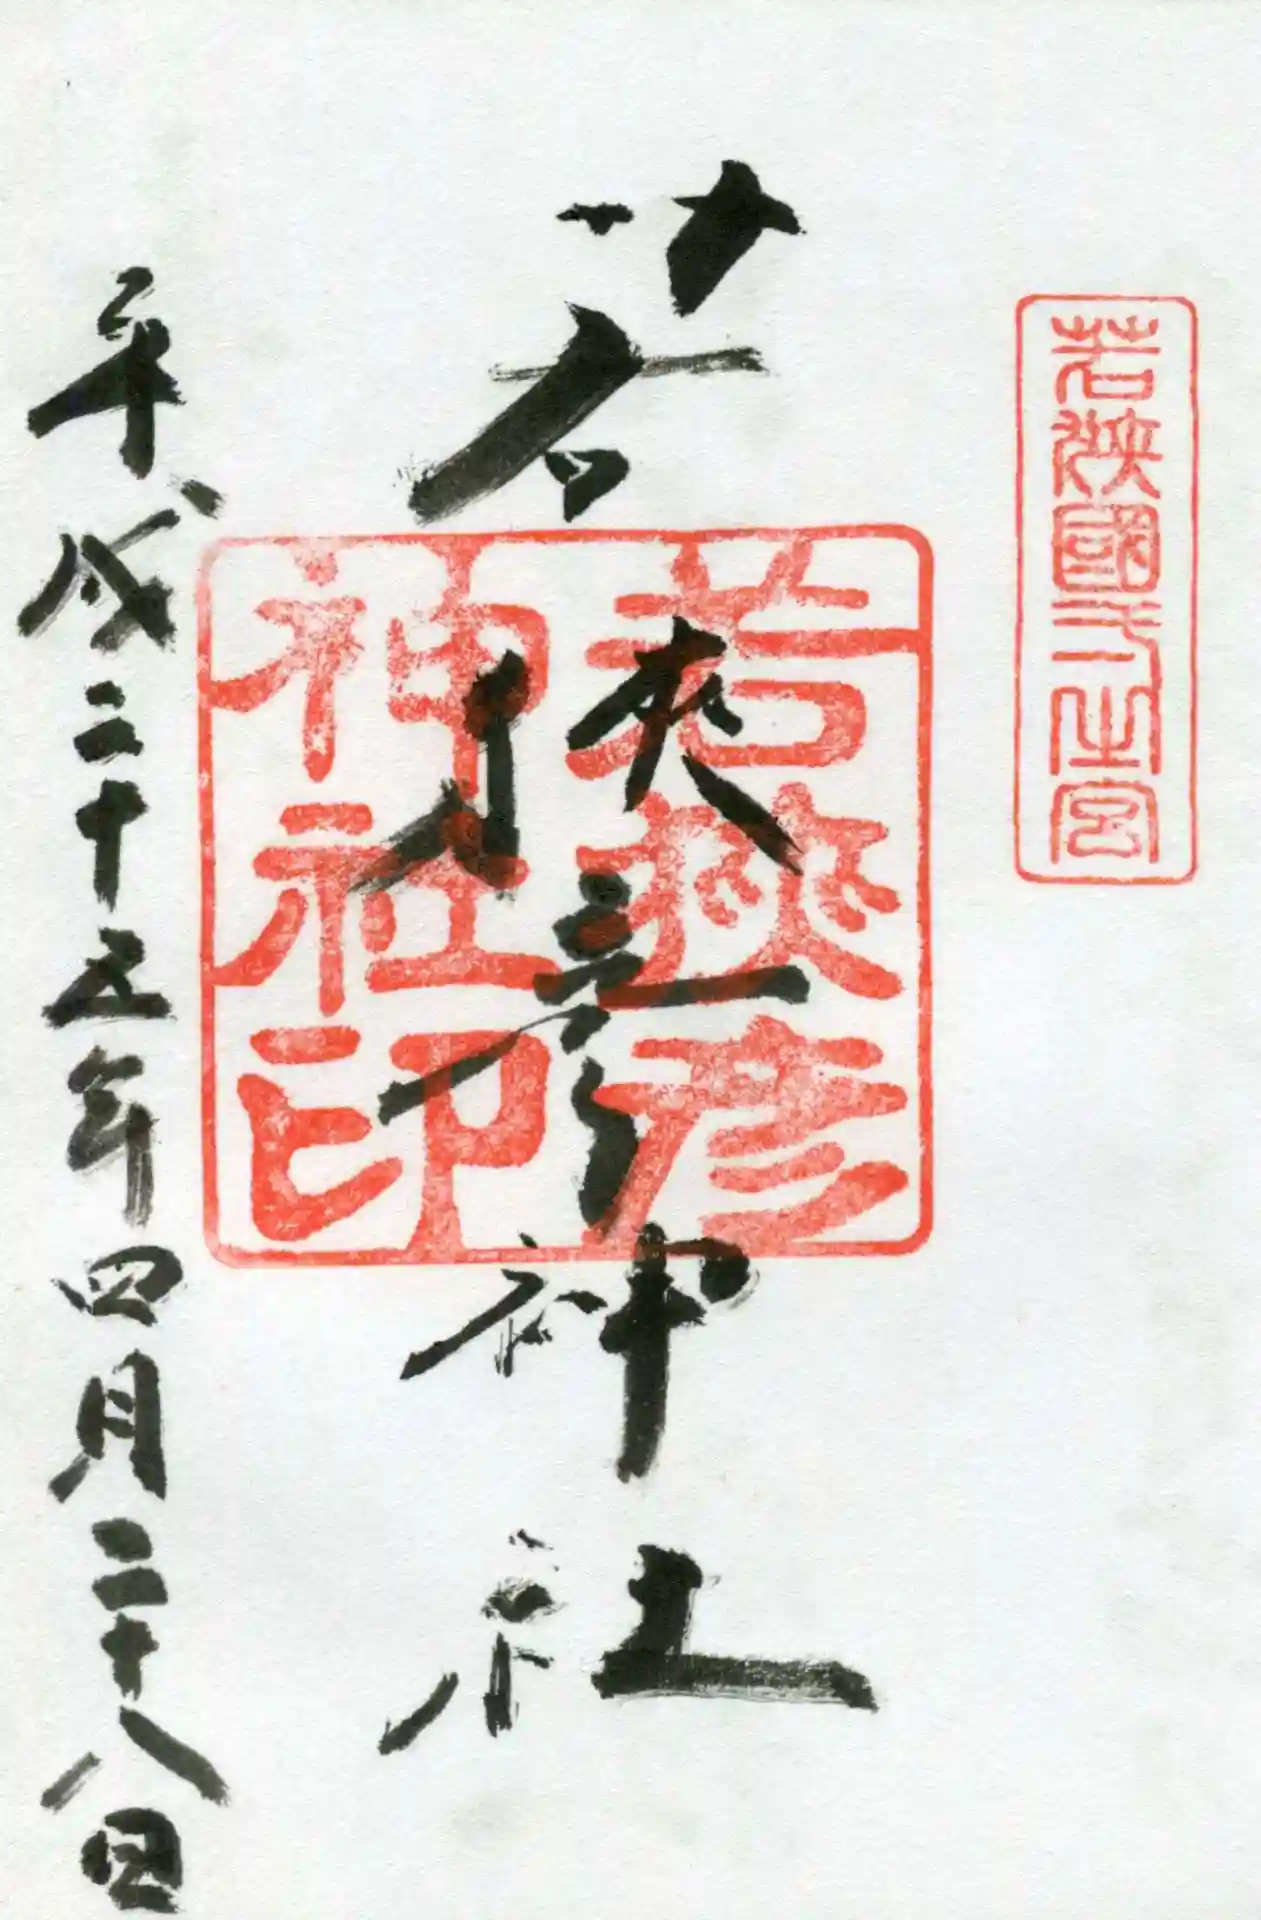 若狹國弌之宮
若狭彦神社
若狹彦
神社印
平成二十五年四月二十八日